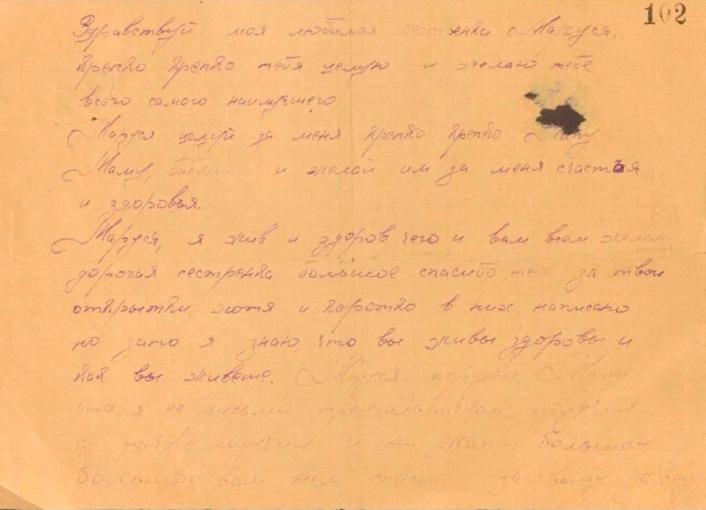 102
Здравствуй моя любимая сестренка Маруся,
крепко крепко тебя целую и желаю тебе
всего самого наилучшего
Маруся целуй за меня крепко крепко Папу
Маму, и желай им за меня счастья
и здоровья.
Маруся, я жив и здоров чего и вам всем желаю
дорогая сестренка большое спасибо тебе за твои
открытки, хотя и коротко в них написано
но зато я знаю, что вы живы здоровы и
как вы живете. Маруся передай Маме
что я ее письмо получил
а также и от большое
большое вам всем спасибо за